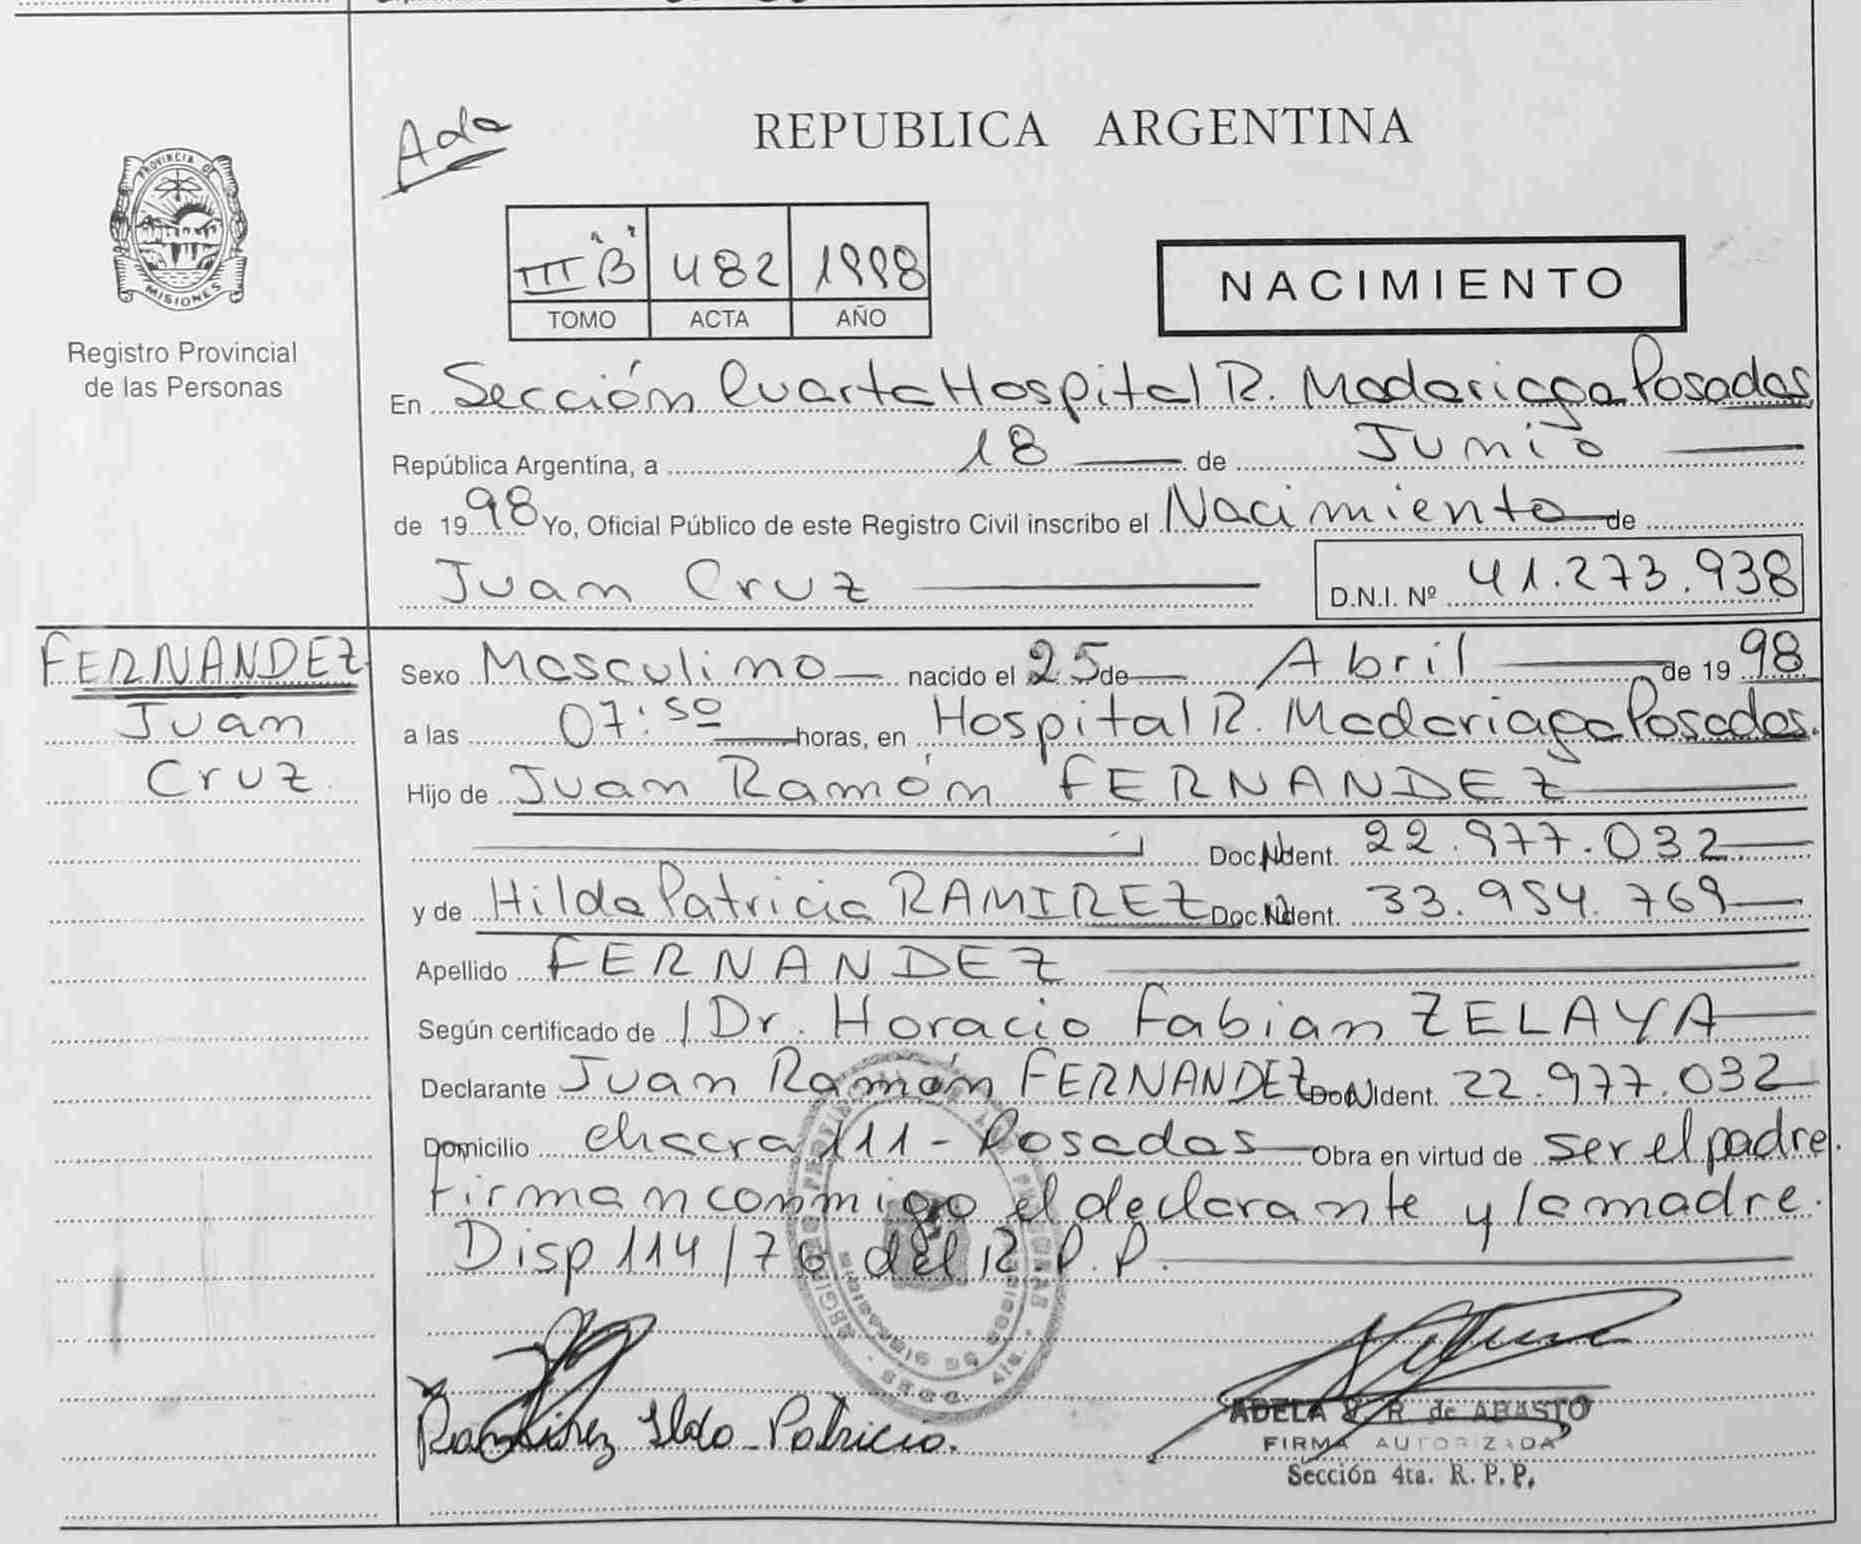 Ada
REPUBLICA ARGENTINA
PROVINCIA DE
MISIONES
Registro Provincial
de las Personas
III "B" 482 1998
TOMO ACTA AÑO
NACIMIENTO
En Sección Cuarta Hospital R. Madariaga Posadas
República Argentina, a 18 de Junio
de 1998 Yo, Oficial Público de este Registro Civil inscribo el Nacimiento de
Juan Cruz D.N.I. Nº 41.273.938
FERNANDEZ
Juan
Cruz
Sexo Masculino nacido el 25 de Abril de 1998
a las 07:50 horas, en Hospital R. Madariaga Posadas.
Hijo de Juan Ramón FERNANDEZ
Doc. Ident. 22.977.032
y de Hilda Patricia RAMIREZ Doc. Ident. 33.954.769
Apellido FERNANDEZ
Según certificado de Dr. Horacio Fabian ZELAYA
Declarante Juan Ramón FERNANDEZ Doc. Ident. 22.977.032
Domicilio chacra 111 - Posadas Obra en virtud de ser el padre.
Firman conmigo el declarante y la madre.
Disp 114/76 del R.P.P.
Ramirez Ilda Patricia.
ADELA R. de ABASTO
FIRMA AUTORIZADA
Sección 4ta. R. P. P.